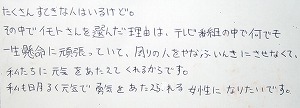 たくさんすてきな人はいるけど。
その中でイモトさんを選んだ理由は、テレビ番組の中で何でも
一生懸命に頑張っていて、周りの人をやなふいんきにさせなくて、
私たちに元気をあたえてくれるからです。
私も明るく元気で勇気をあたえられる女性になりたいです。